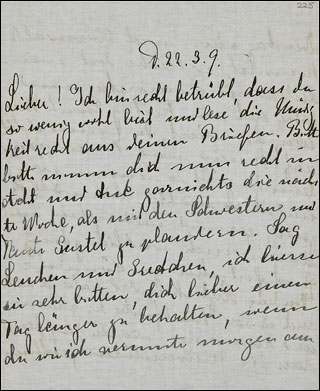 225
D. 22. 3. 9.
Lieber! Ich bin recht betrübt, dass du
so wenig wohl bist und lese die Müdig
keit recht aus deinen Briefen. Bitte
bitte nimm dich nun recht in
Acht und tue garnichts die nächs
te Woche, als mit den Schwestern und
Tante Gustel zu plaudern. Sag
Lenchen und, ich liesse
sie sehr bitten, dich lieber einen
Tag länger zu behalten, wenn
du wie ich vermute morgen am